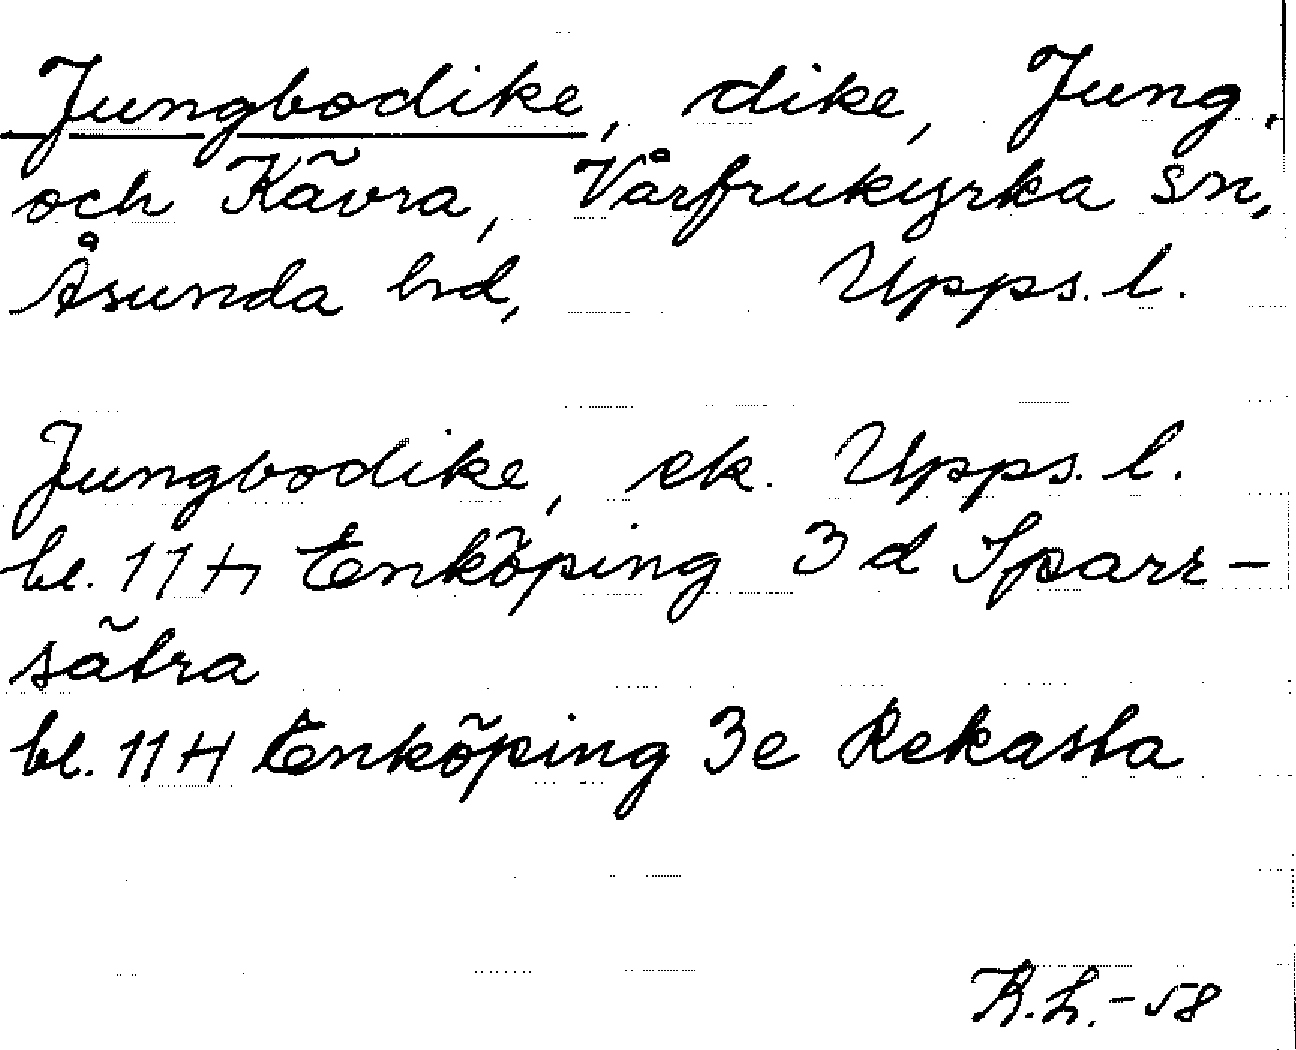 Jungbodike, dike, Jung.
och Kävra, Vårfrukyrka sn,
Åsunda hd, Upps. l.
Jungbodike, ek. Upps. l.
bl. 11 H Enköping 3 d Sparr-
sätra
bl. 11 H Enköping 3e Rekasta
K.L.-58